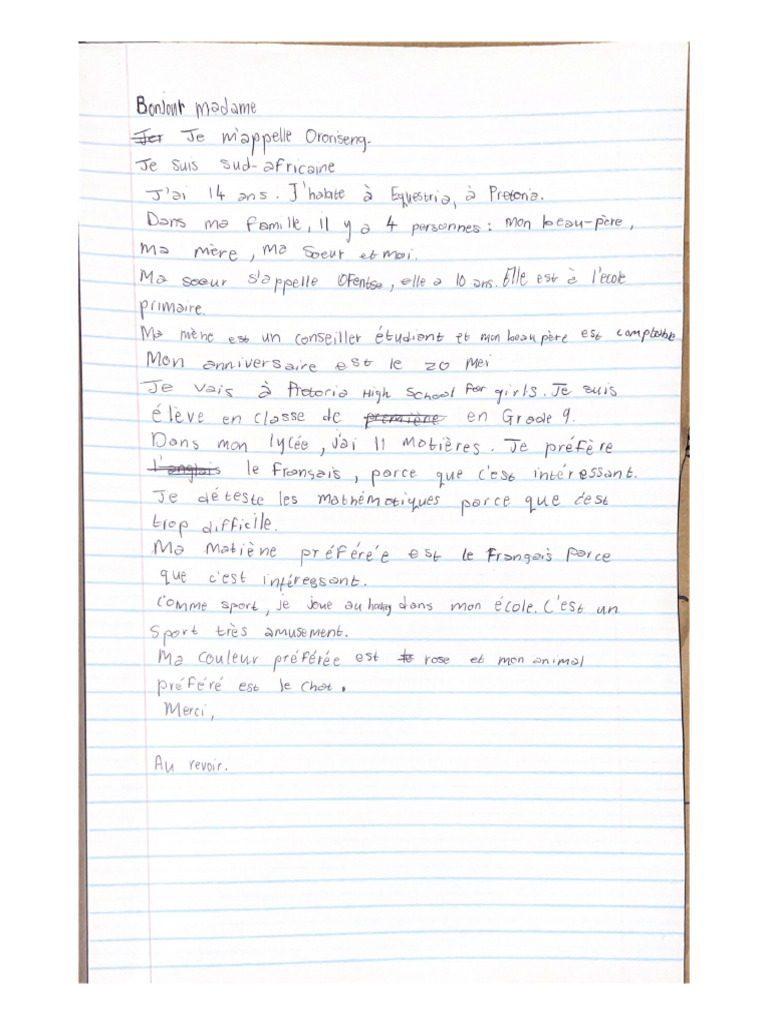 Bonjour madame
Je m'appelle Oronseng.
Je suis sud-africaine
J'ai 14 ans. J'habite à Equestria, à Pretoria.
Dans ma famille, il y a 4 personnes: mon beau-père,
ma mère, ma soeur et moi.
Ma soeur s'appelle Ofentse, elle a 10 ans. Elle est à l'école
primaire.
Ma mère est un conseiller étudiant et mon beau père est comptable
Mon anniversaire est le 20 Mei
Je vais à Pretoria High School for girls. Je suis
élève en classe de première en Grade 9.
Dans mon lycée, j'ai 11 matières. Je préfère
l'anglais le français, parce que c'est intéressant.
Je déteste les mathématiques parce que c'est
trop difficile.
Ma matière préférée est le Français parce
que c'est intéressant.
Comme sport, je joue au dans mon école. C'est un
sport très amusement.
Ma couleur préférée est rose et mon animal
préféré est le chat.
Merci,
Au revoir.